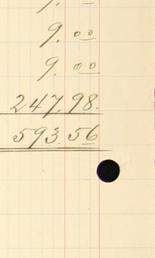 9.00
9.00
247.98.
593.56